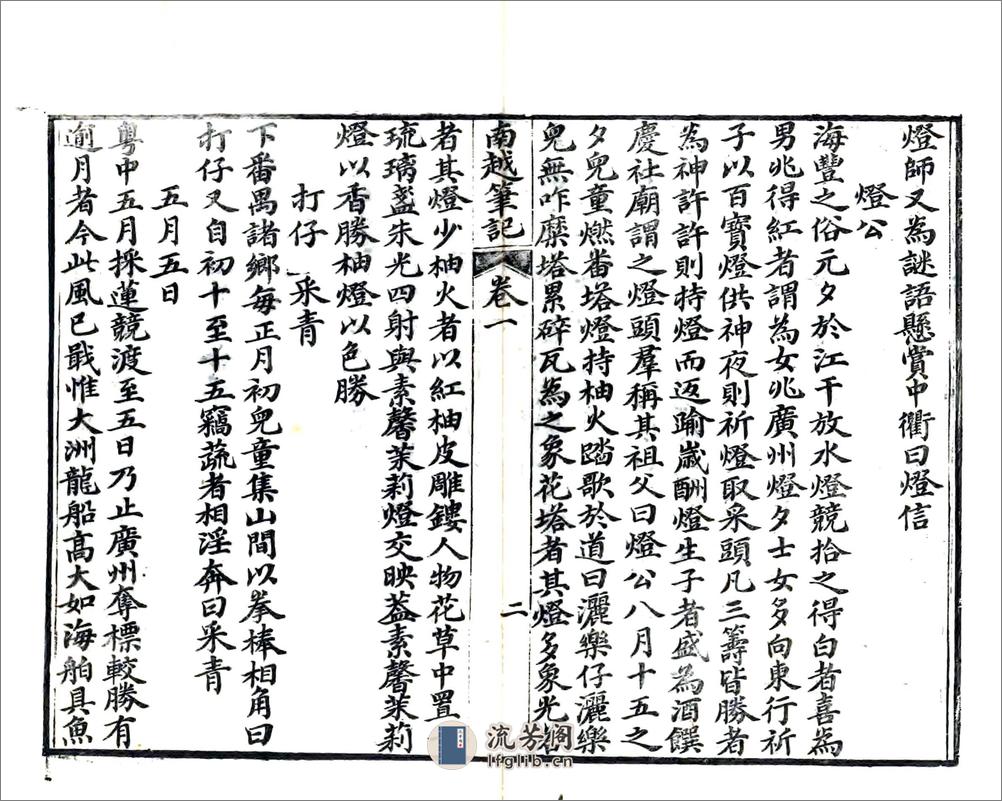 燈師又為謎語懸賞中衢曰燈信
燈公
海豐之俗元夕於江干放水燈競拾之得白者喜為
男兆得紅者謂為女兆廣州燈夕士女多向東行祈
子以百寶燈供神夜則祈燈取采頭凡三籌皆勝者
為神許許則持燈而返踰歲酬燈生子者盛為酒饌
慶社廟謂之燈頭羣稱其祖父曰燈公八月十五之
夕兒童燃番塔燈持柚火踏歌於道曰灑樂仔灑樂
兒無咋糜塔累碎瓦為之象花塔者其燈多象光塔
南越筆記 卷一 二
者其燈少柚火者以紅柚皮雕鏤人物花草中置一
琉璃盞朱光四射與素馨茉莉燈交映葢素馨茉莉
燈以香勝柚燈以色勝
打仔 采青
下番禺諸鄉每正月初兒童集山間以拳棒相角曰
打仔又自初十至十五竊蔬者相淫奔曰采青
五月五日
粵中五月採蓮競渡至五日乃止廣州奪標較勝有
逾月者今此風已戢惟大洲龍船高大如海舶具魚
流芳阁
lfglib.cn